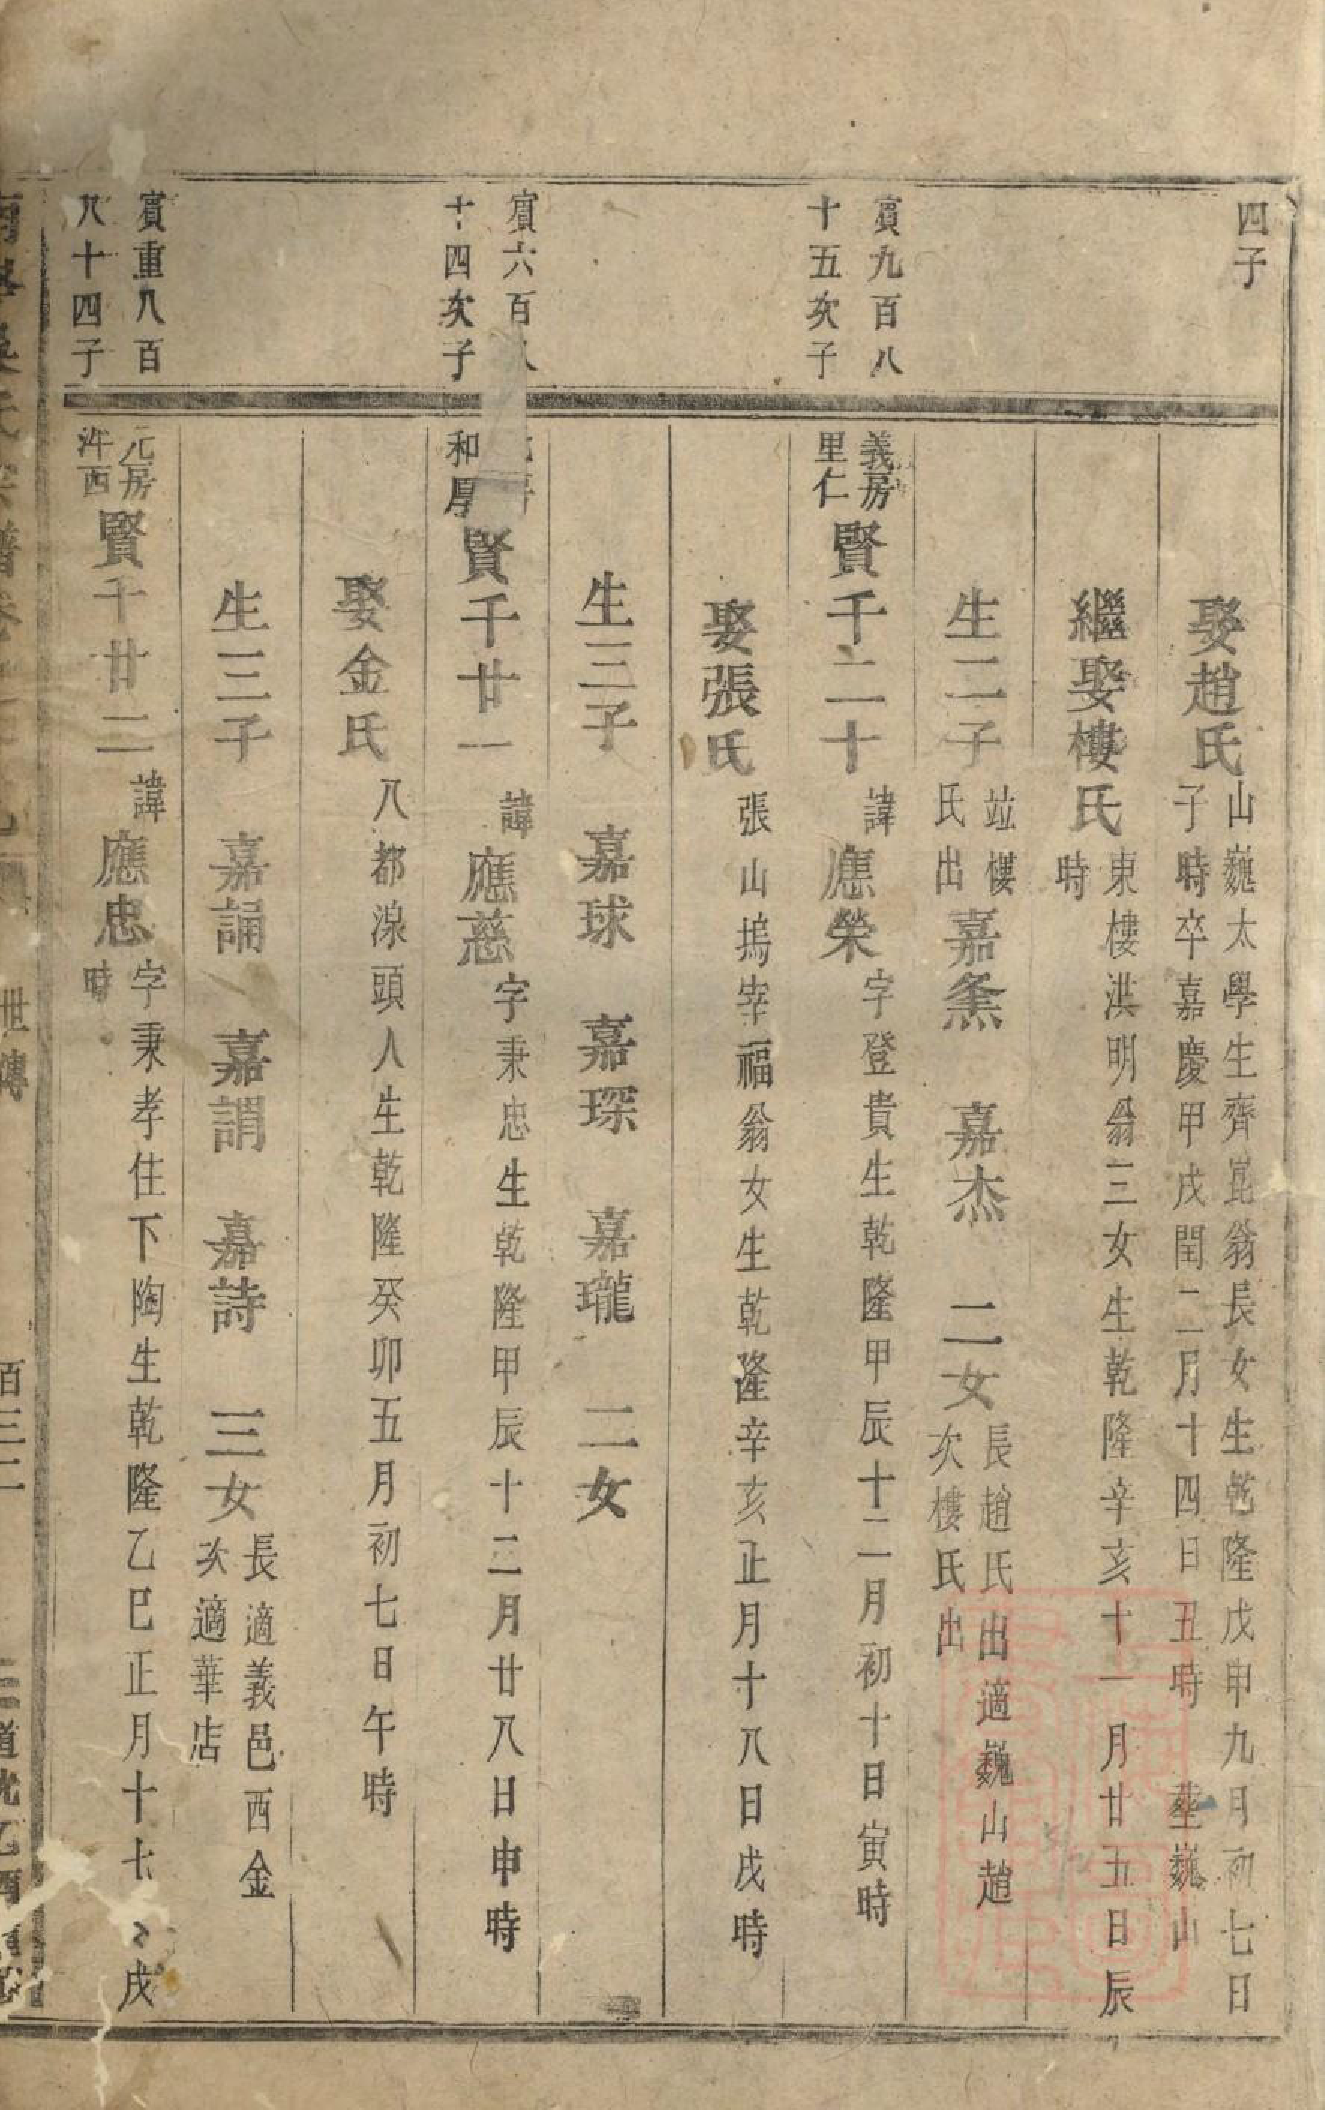 四子
娶趙氏 山巍太學生齊崑翁長女生乾隆戊申九月初七日
子時卒嘉慶甲戌閏二月十四日丑時 塟巍山
繼娶樓氏 東樓洪明翁三女生乾隆辛亥十一月廿五日辰
時
生二子 竝樓氏出 嘉 嘉杰 二女 長趙氏出適巍山趙
次樓氏出
賓九百八
十五次子
義房
里仁
賢千二十 諱應榮 字登貴生乾隆甲辰十二月初十日寅時
娶張氏 張山塢宰福翁女生乾隆辛亥正月十八日戌時
生三子 嘉球 嘉琛 嘉瓏 二女
賓六百八
十四次子
和厚
賢千廿一 諱應慈 字秉忠生乾隆甲辰十二月廿八日申時
娶金氏 八都湶頭人生乾隆癸卯五月初七日午時
生三子 嘉誦 嘉謂 嘉詩 三女 長適義邑西金
次適華店
賓重八百
八十四子
元房
泮西
賢千廿二 諱應忠 字秉孝住下陶生乾隆乙巳正月十七 戌
時
吳氏宗譜卷 世傳 百三二